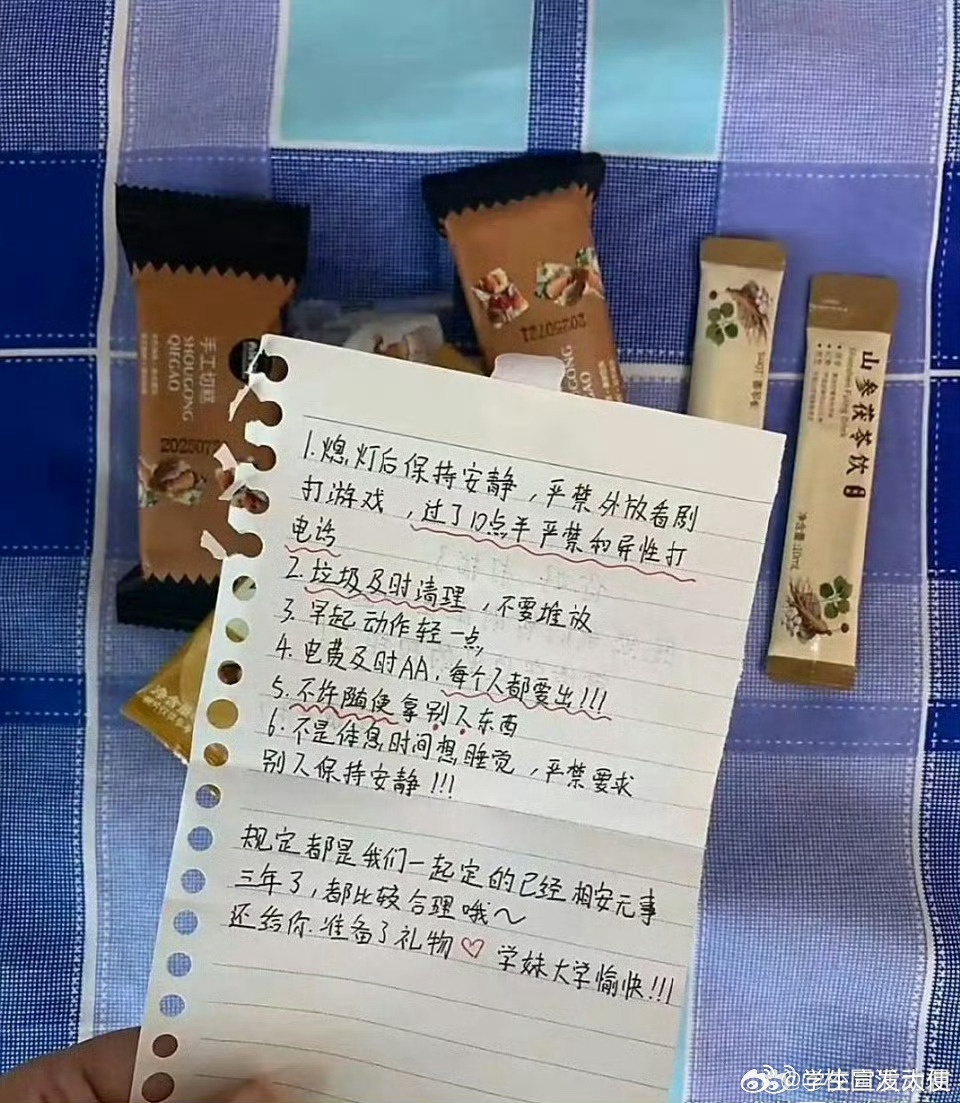 手工切糕
SHOUGONG
QIEGAO
20250721
山参茯苓饮
净含量:10mL
1.熄灯后保持安静,严禁外放看剧
打游戏,过了10点半严禁和异性打
电话
2.垃圾及时清理,不要堆放
3.早起动作轻一点
4.电费及时AA,每个人都要出!!!
5.不许随便拿别人东西
6.不是休息时间想睡觉,严禁要求
别人保持安静!!!
规定都是我们一起定的已经相安无事
三年了,都比较合理哦~
还给你准备了礼物♡ 学妹大学愉快!!!
@学生宣发大使